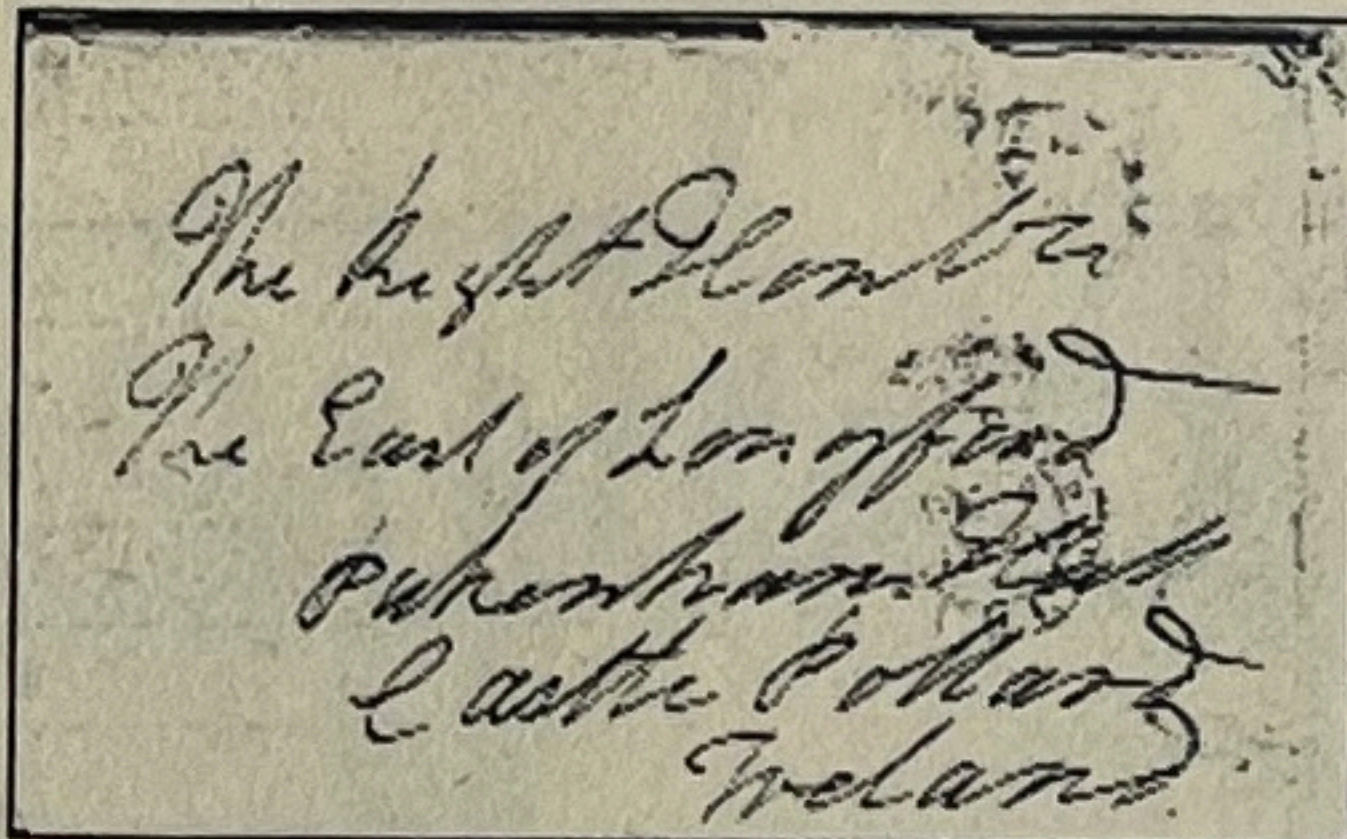 The Right Honble
The Earl of Longford
Pakenham Hall
Castle Pollard
Ireland